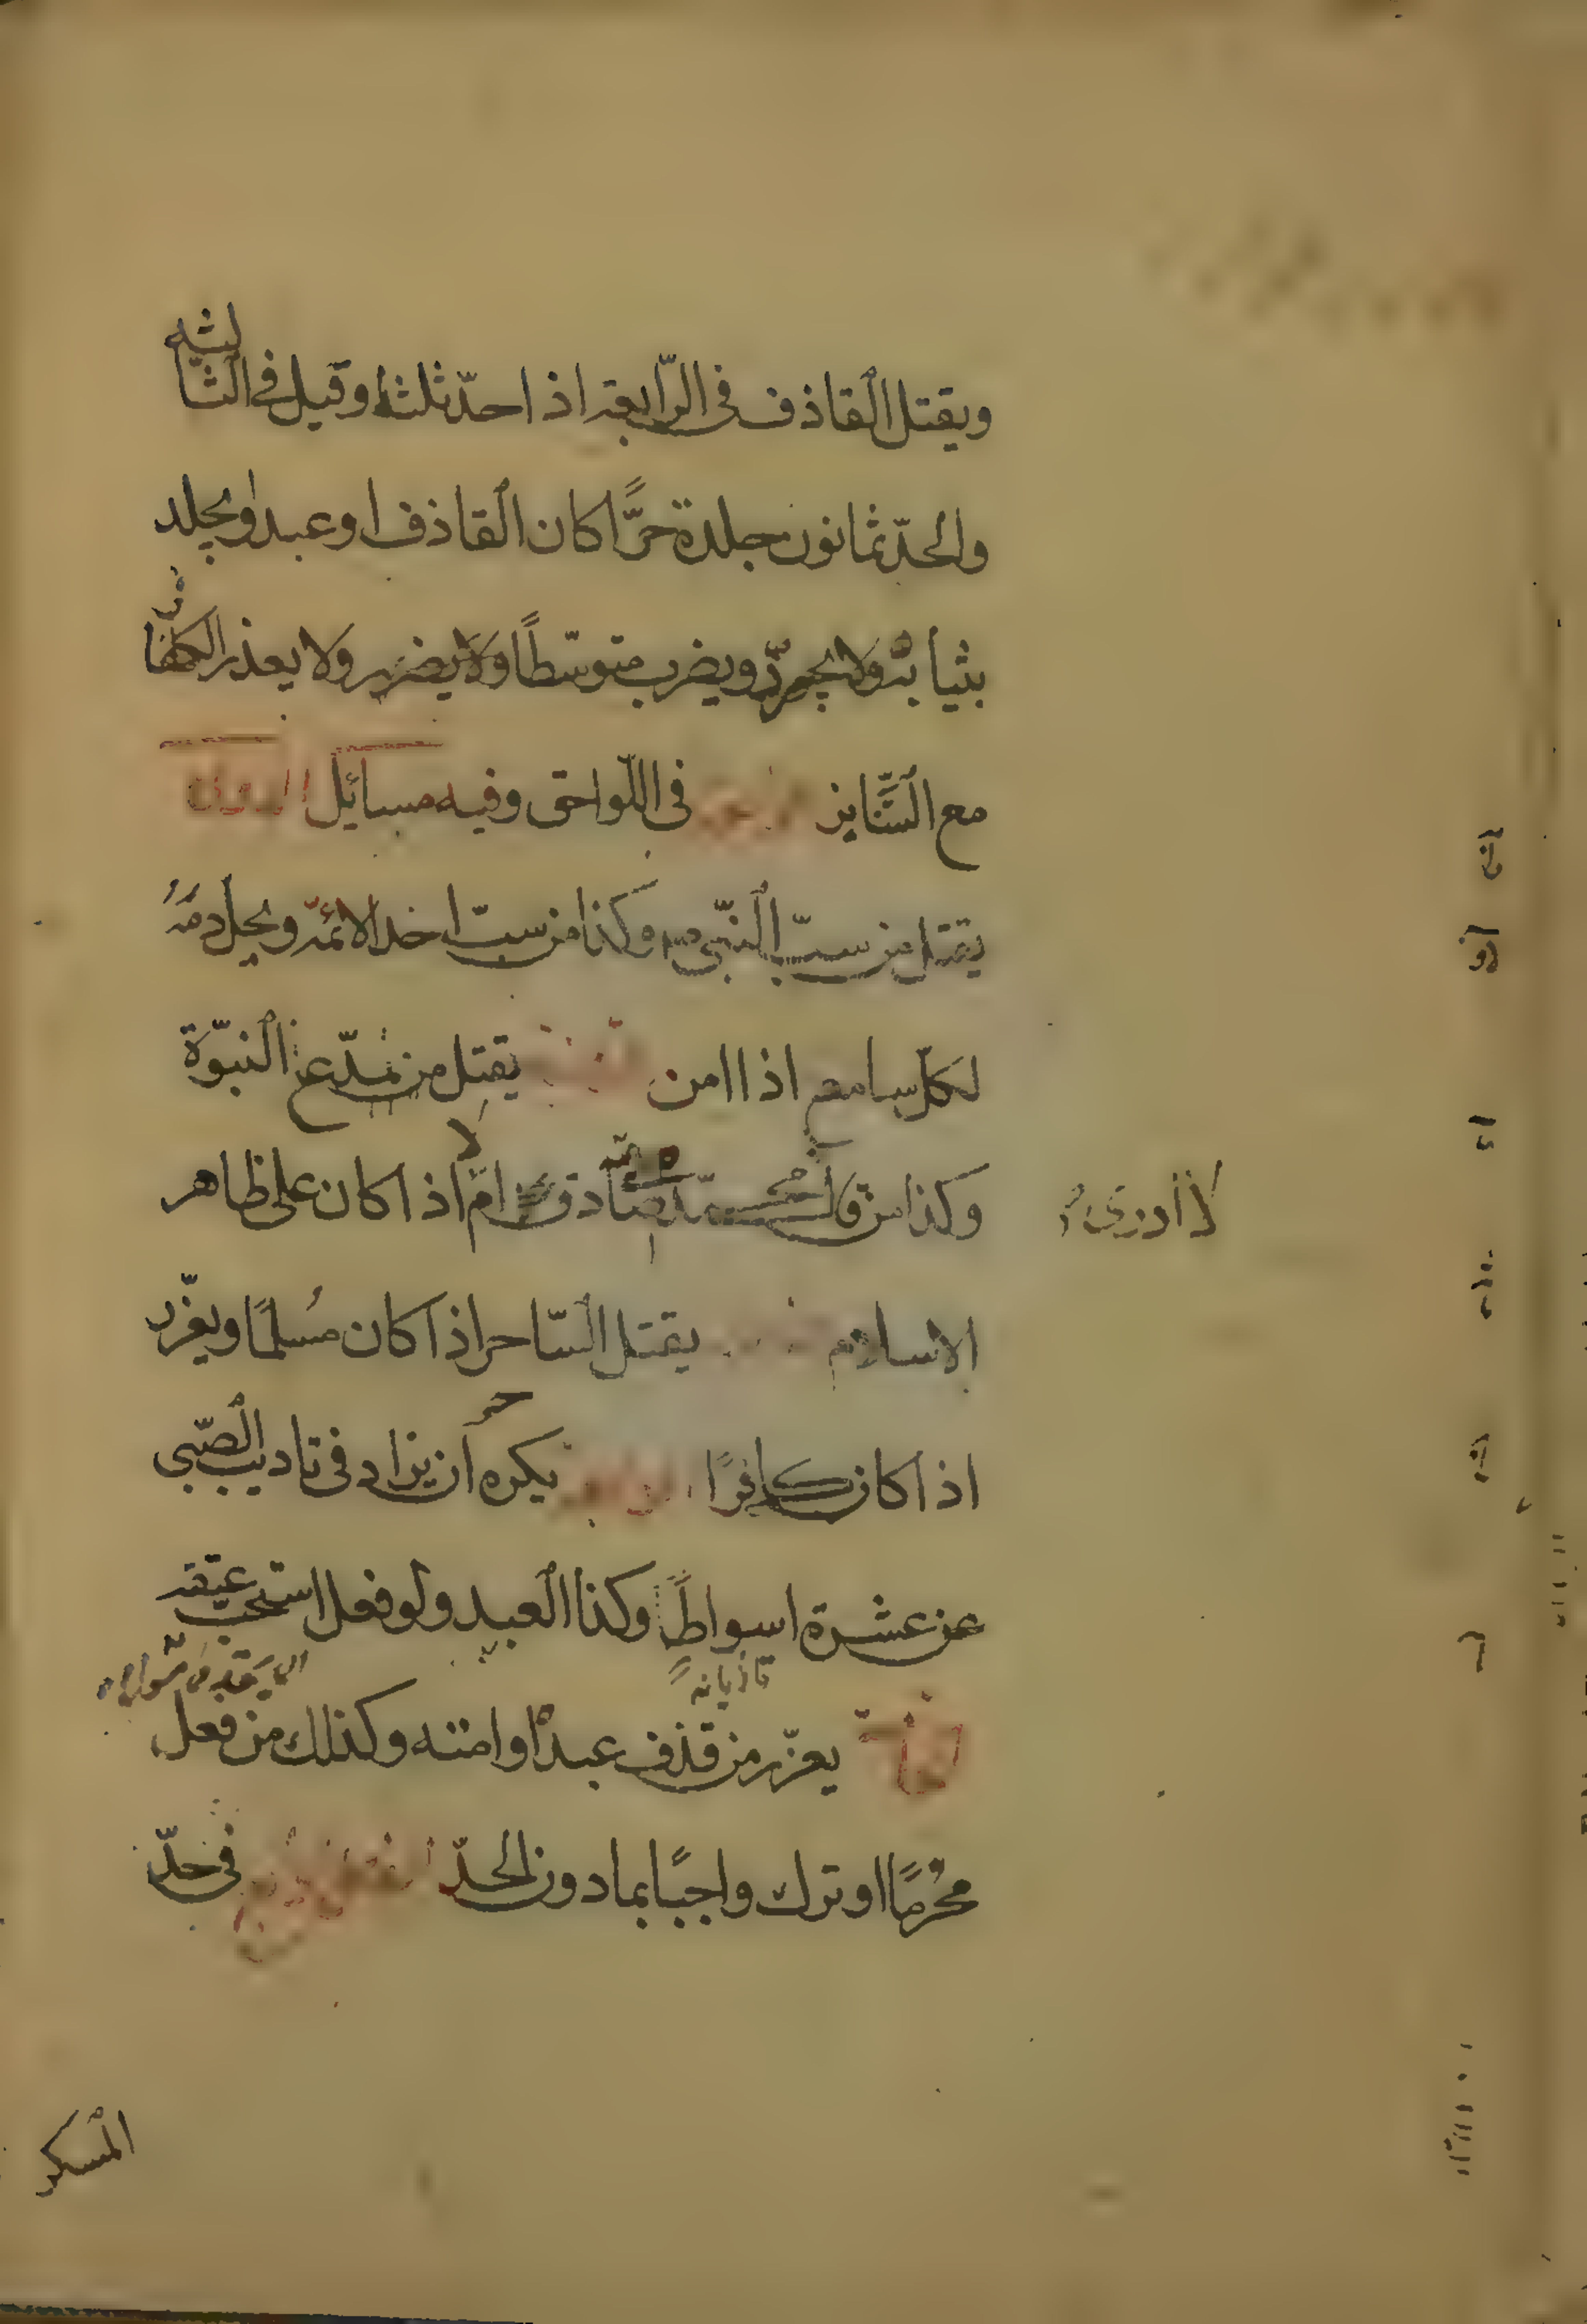 ويقتل القاذف فى الرّابعة اذا حدّ ثلثا وقيل فى الثّالثه
والحدّ ثمانون جلدة حرًّا كان القاذف او عبدا ويجلد
بثيابه ولا يجرّد ويضرب متوسّطًا ولا يعذر الكفار
مع التّنابز فى اللّواحق وفيه مسائل الاولى
يقتل من سبّ النّبى ص وكذا من سبّ احد الائمّه ويحل دمه
لكلّ سامع اذا امن الثانية يقتل من يدّعى النبوّة
وكذا من قال لا ادرى محمّد صادق ام لا اذا كان على ظاهر
الاسلام يقتل السّاحر اذا كان مُسلمًا ويعزّر
اذا كان كافرًا الرابعة يكره ان يزاد فى تاديب الصّبى
عن عشرة اسواطٍ وكذا العبد ولو فعل استحب عتقه
تازيانه
يعزّر من قذف عبدًا او امته وكذلك من فعل
محُرمًا او ترك واجبًا بما دون الحدّ فى حدّ
لا ادرى
المسكر